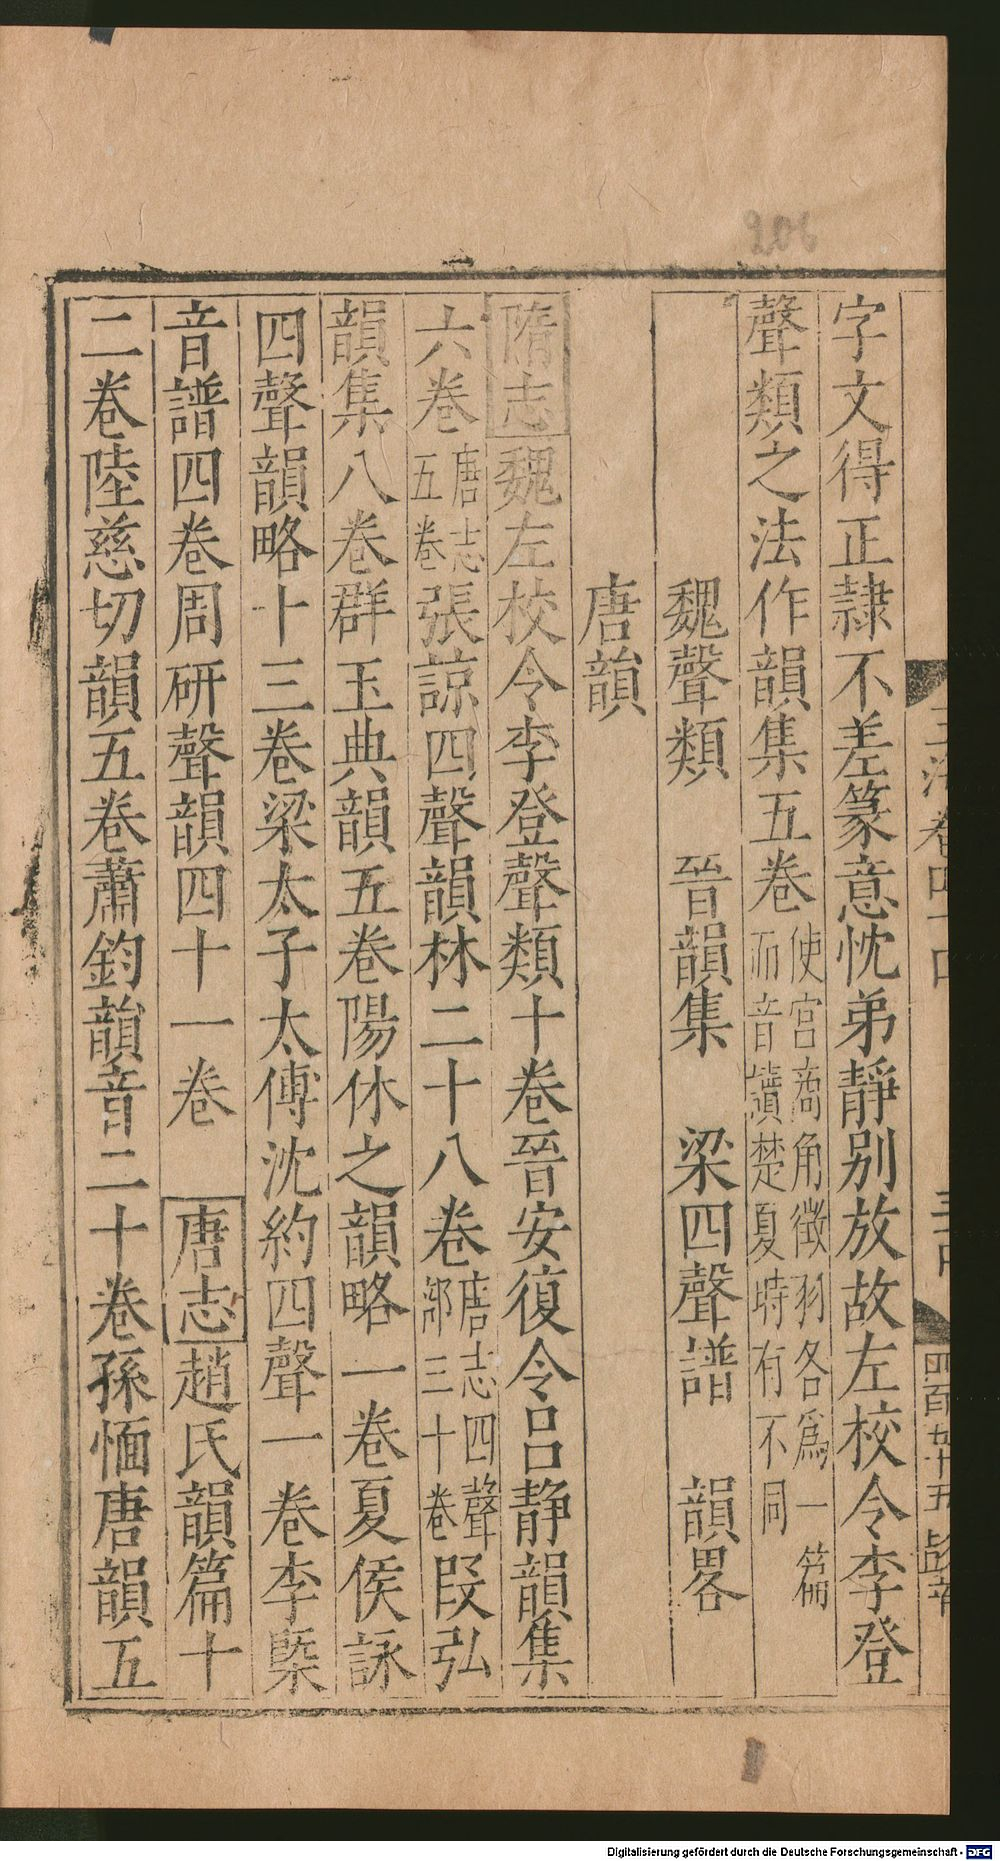 206
字文得正隷不差篆意忱弟靜别放故左校令李登
聲類之法作韻集五卷使宮商角徵羽各爲一篇而音讀楚夏時有不同
魏聲類 晉韻集 梁四聲譜 韻畧
唐韻
隋志魏左校令李登聲類十卷晉安復令吕静韻集
六卷唐志五卷張諒四聲韻林二十八卷唐志四聲部三十卷段弘
韻集八卷群玉典韻五卷陽休之韻略一卷夏侯詠
四聲韻略十三卷梁太子太傅沈約四聲一卷李槩
音譜四卷周研聲韻四十一卷 唐志趙氏韻篇十
二卷陸慈切韻五卷蕭鈞韻音二十卷孫愐唐韻五
四百五十五
Digitalisierung gefördert durch die Deutsche Forschungsgemeinschaft - DFG